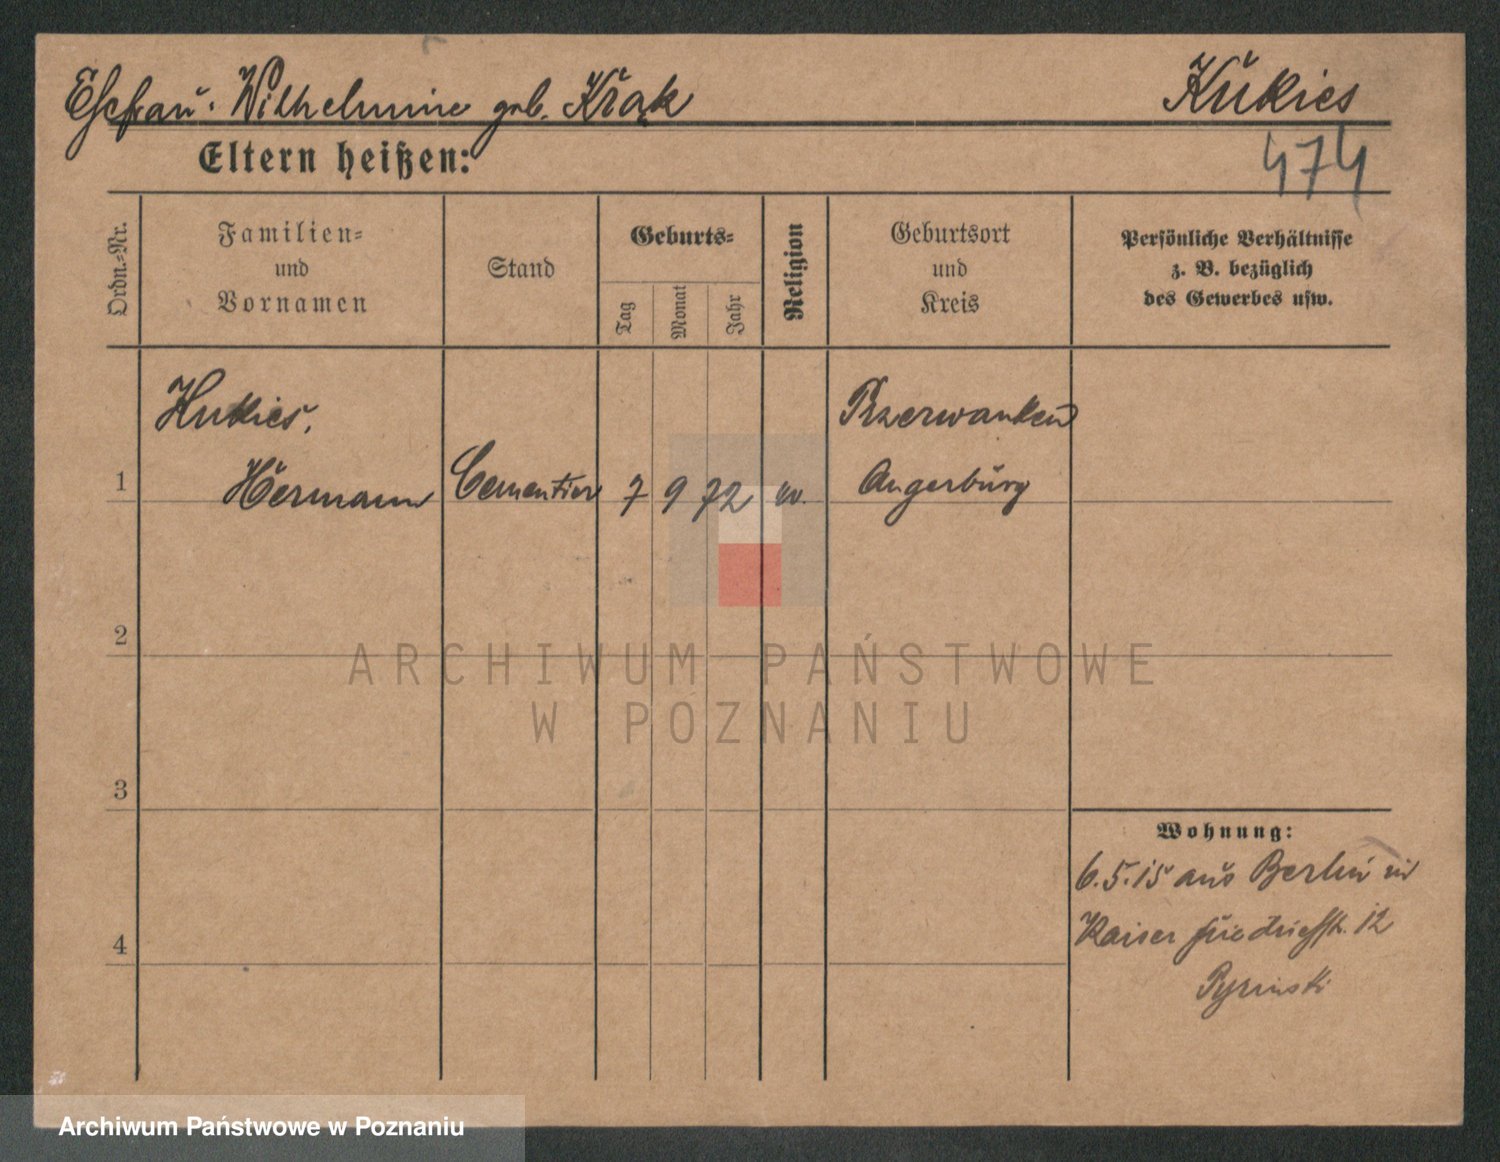 Ehefrau: Wilhelmine geb. Krak
Kukies
474
Eltern heißen:
Ordn.-Nr.
Familien-
und
Vornamen
Stand
Geburts-
Tag
Monat
Jahr
Religion
Geburtsort
und
Kreis
Persönliche Verhältnisse
z. B. bezüglich
des Gewerbes usw.
Kukies,
Przerwanken
1
Hermann
Cementier
7
9
72
Angerburg
2
ARCHIWUM PAŃSTWOWE
W POZNANIU
3
Wohnung:
6.5.15 aus Berlin in
Kaiser Friedrichstr. 12
4
Archiwum Państwowe w Poznaniu